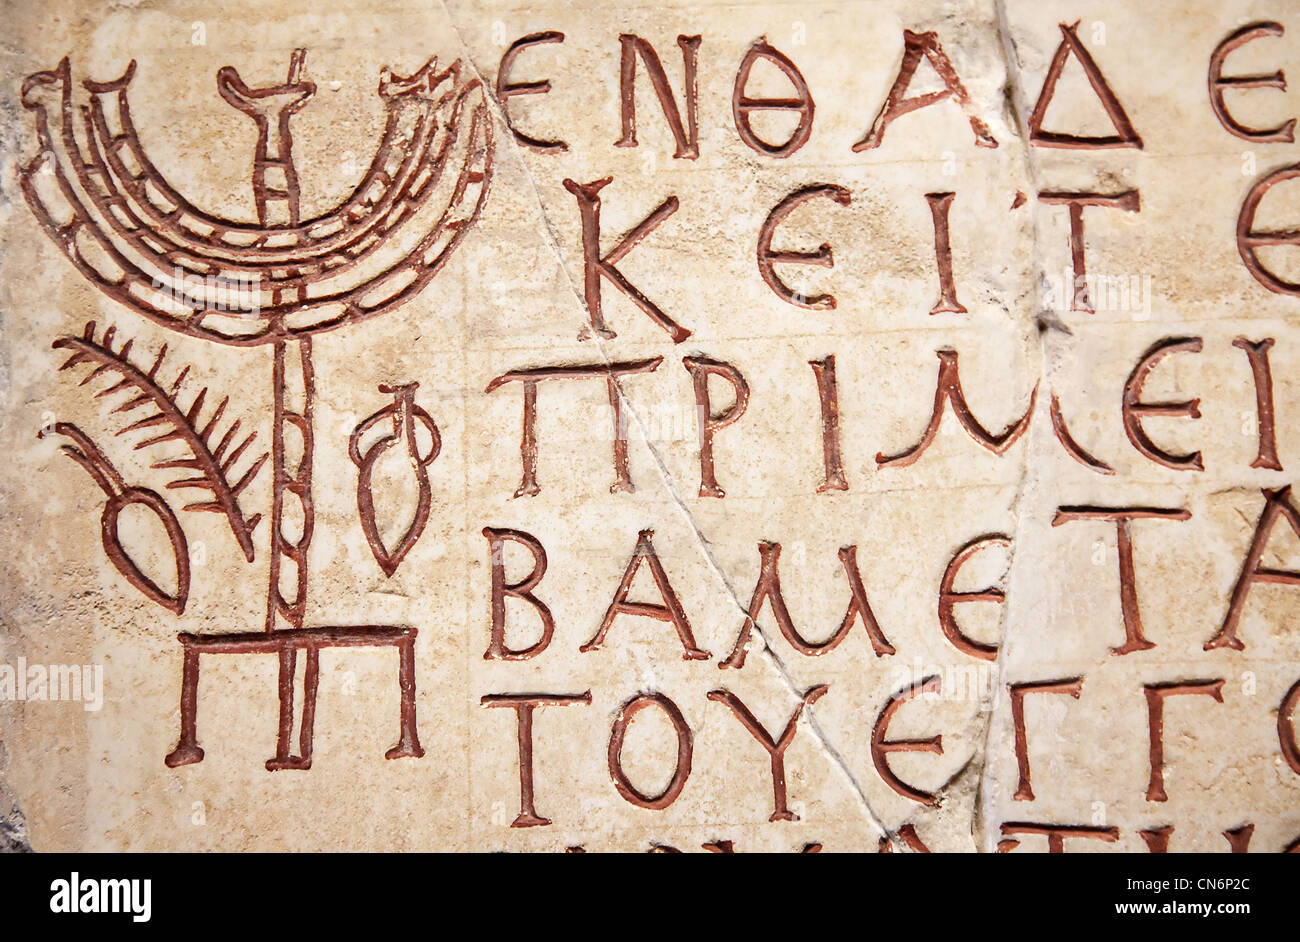 ЄΝΘΑΔЄ
ΚЄΙΤЄ
ΠΡΙΜЄΙ
ΒΑΜЄΤΑ
ΤΟΥЄΓΓΟ
alamy
Image ID: CN6P2C
www.alamy.com